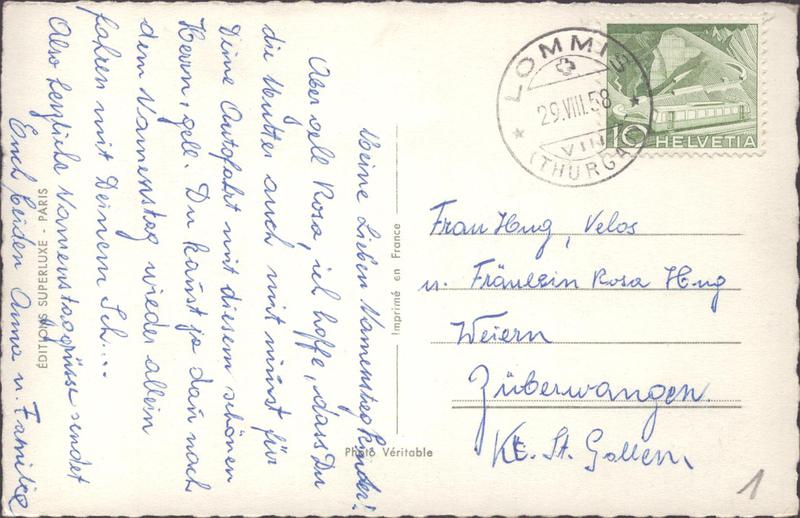 Meine Lieben Namenstag Kinder!
Aber gell Rosa, ich hoffe, dass Du
die Mutter auch mit nimst für
Deine Autofahrt mit diesem schönen
Herrn, gell. Du kanst ja dan noch
dem Namenstag wieder allein
fahren mit Deinem Sch....
Also herzliche Namenstaggrüsse sendet
Euch beiden Anna u. Familie
ÉDITIONS SUPERLUXE - PARIS
Imprimé en France
Photo Véritable
LOMMIS
29.VIII.58
VIII
(THURGAU)
10 HELVETIA
Frau Hug, Velos
u. Fräulein Rosa Hug
Weiern
Züberwangen
Kt. St. Gallen
1